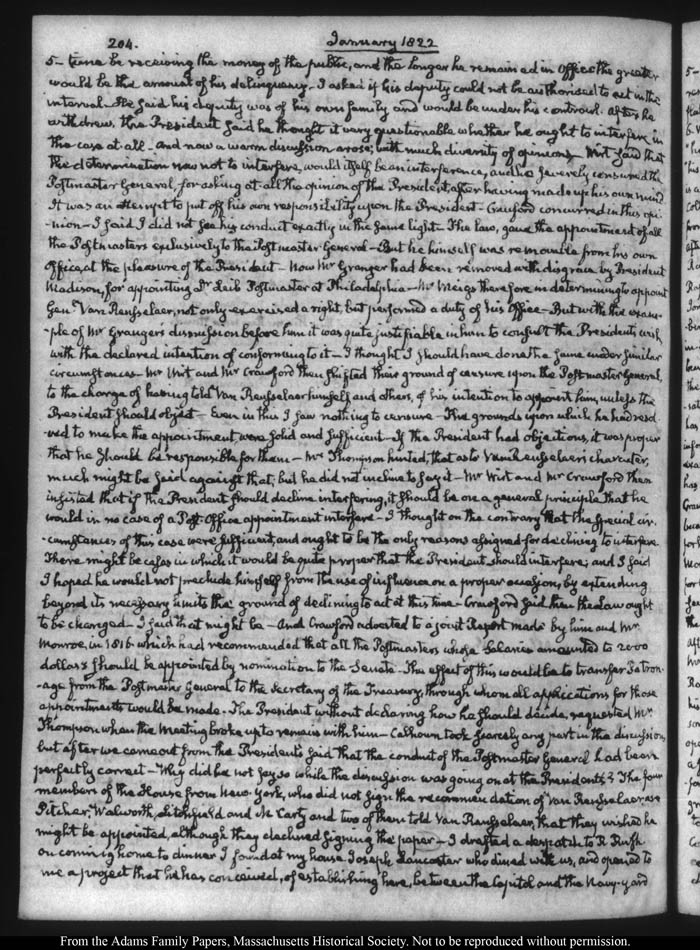 204.
January 1822
5- time be receiving the money of the public, and the longer he remained in Office the greater
would be the amount of his delinquency. I asked if his deputy could not be authorised to act in the
interval. He said his deputy was of his own family and would be under his controul. After he
withdrew the President said he thought it very questionable whether he ought to interfere in
the case at all. And now a warm discussion arose; with much diversity of opinions. Wirt said that
the determination now not to interfere, would itself be an interference, and he severely censured the
Postmaster General, for asking at all the opinion of the President, after having made up his own mind.
It was an attempt to put off his own responsibility upon the President - Crawford concurred in this opi-
-nion - I said I did not see his conduct exactly in the same light - The law, gave the appointment of all
the Postmasters exclusively to the Postmaster General - But he himself was removable from his own
Office, at the pleasure of the President - Now Mr Granger had been removed with disgrace by President
Madison, for appointing Dr Leib Postmaster at Philadelphia - Mr Meigs therefore in determining to appoint
Genl Van Rensselaer, not only exercised a right, but performed a duty of his Office - But with the exam-
-ple of Mr Granger's dismission before him it was quite justifiable in him to consult the President's wish
with the declared intention of conforming to it - I thought I should have done the same under similar
circumstances - Mr Wirt and Mr Crawford then shifted their ground of censure upon the Postmaster General,
to the charge of having told Van Rensselaer himself and others, of his intention to appoint him, unless the
President should object - Even in this I saw nothing to censure - The grounds upon which he had resol-
-ved to make the appointment were solid and sufficient - If the President had objections, it was proper
that he should be responsible for them - Mr Thompson hinted, that as to Van Rensselaer's character,
much might be said against that, but he did not incline to say it - Mr Wirt and Mr Crawford then
insisted that if the President should decline interfering, it should be on a general principle that he
would in no case of a Post-Office appointment interfere - I thought on the contrary that the special cir-
-cumstances of this case were sufficient, and ought to be the only reasons assigned for declining to interfere.
There might be cases in which it would be quite proper that the President should interfere; and I said
I hoped he would not preclude himself from the use of influence on a proper occasion, by extending
beyond its necessary limits the ground of declining to act at this time - Crawford said then the Law ought
to be changed - I said that might be - And Crawford adverted to a joint Report made by him and Mr
Monroe, in 1816. which had recommended that all the Postmasters whose Salaries amounted to 2000
dollars should be appointed by nomination to the Senate - The effect of this would be to transfer Patron-
-age from the Postmaster General to the Secretary of the Treasury, through whom all applications for those
appointments would be made - The President without declaring how he should decide, requested Mr
Thompson when the Meeting broke up to remain with him - Calhoun took scarcely any part in the discussion,
but after we came out from the President's said that the conduct of the Postmaster General had been
perfectly correct - Why did he not say so while the discussion was going on at the President's? The four
members of the House from New-York, who did not sign the recommendation of Van Rensselaer are
Pitcher, Walworth, Litchfield and Mc Carty and two of them told Van Rensselaer, that they wished he
might be appointed, although they declined signing the paper - I drafted a despatch to R. Rush.
on coming home to dinner I found at my house Joseph Lancaster who dined with us, and opened to
me a project that he has conceived, of establishing here, between the Capitol and the Navy-yard
From the Adams Family Papers, Massachusetts Historical Society. Not to be reproduced without permission.